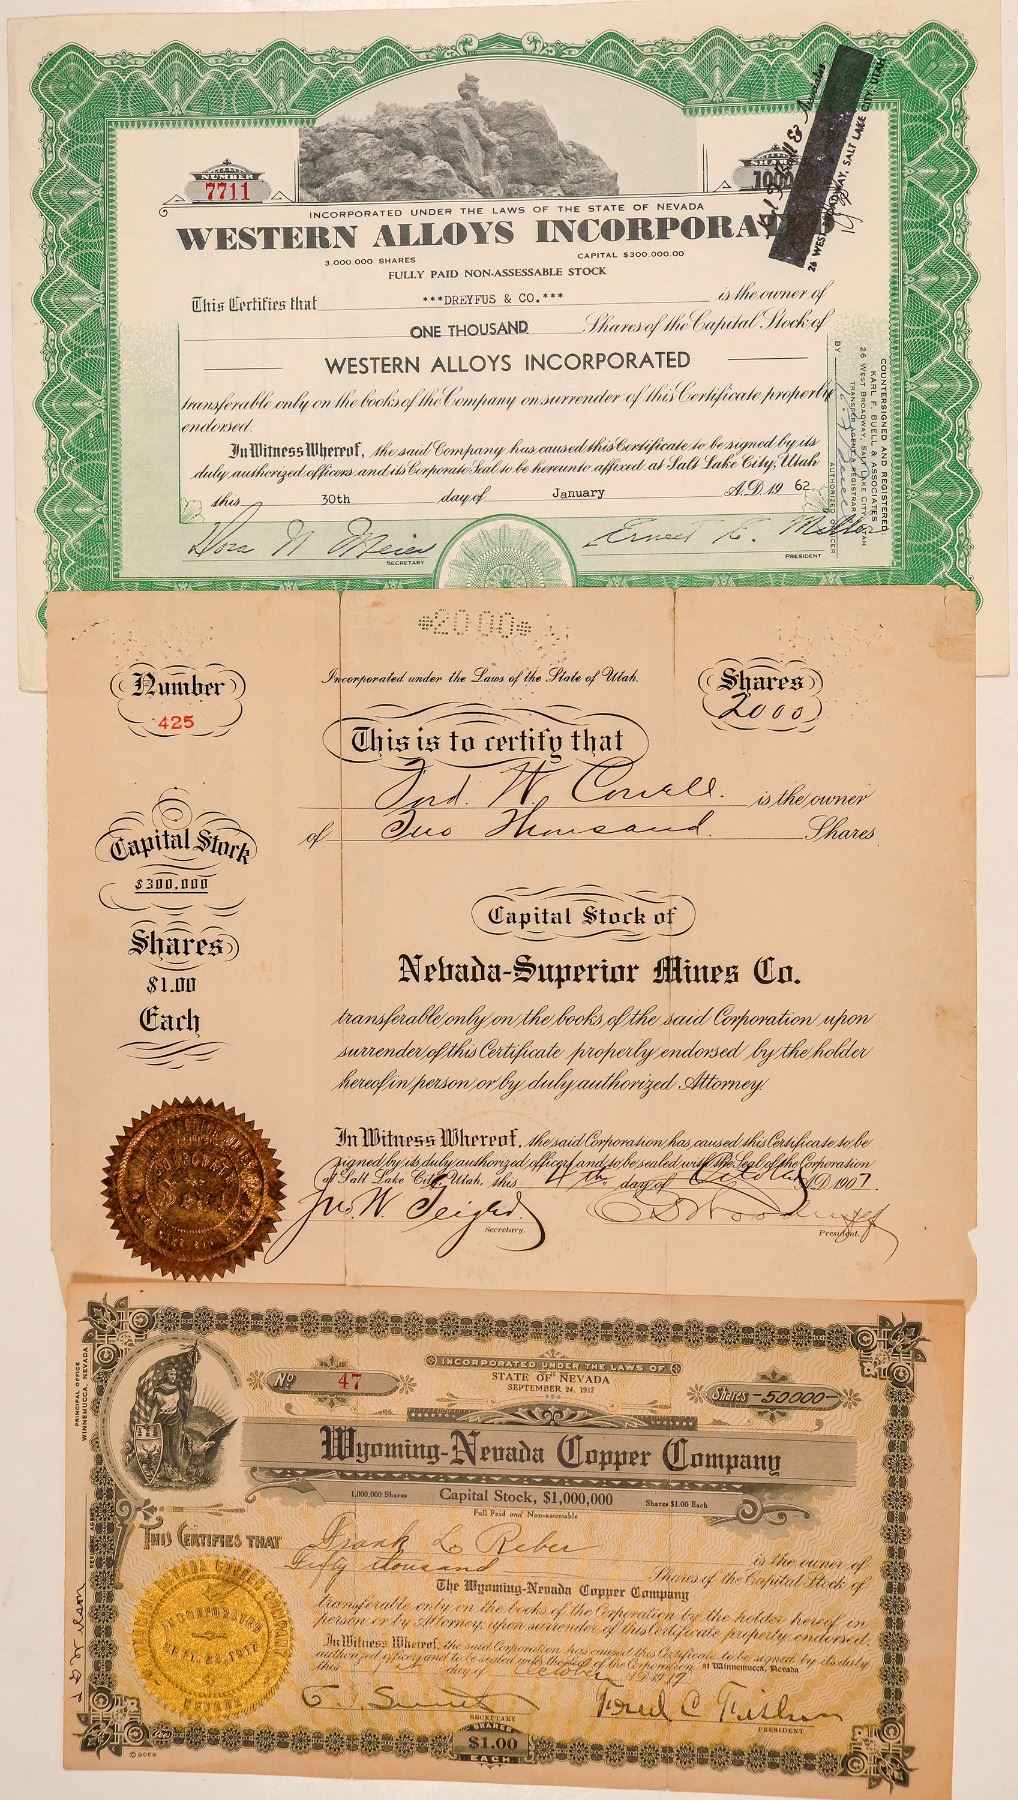 NUMBER
7711
SHARES
1000
INCORPORATED UNDER THE LAWS OF THE STATE OF NEVADA
WESTERN ALLOYS INCORPORATED
3,000,000 SHARES
CAPITAL $300,000.00
FULLY PAID NON-ASSESSABLE STOCK
This Certifies that ***DREYFUS & CO.*** is the owner of
ONE THOUSAND Shares of the Capital Stock of
WESTERN ALLOYS INCORPORATED
transferable only on the books of the Company on surrender of this Certificate properly
endorsed.
In Witness Whereof, the said Company has caused this Certificate to be signed by its
duly authorized officers and its Corporate Seal to be hereunto affixed at Salt Lake City, Utah
this 30th day of January A.D. 19 62
Dora N Meier
SECRETARY
Ernest E. Miller
PRESIDENT
26 WEST BROADWAY, SALT LAKE CITY, UTAH
COUNTERSIGNED AND REGISTERED:
KARL F. BUELL & ASSOCIATES
26 WEST BROADWAY, SALT LAKE CITY, UTAH
TRANSFER AGENT & REGISTRAR
BY
AUTHORIZED OFFICER
*2000*
Number
425
Incorporated under the Laws of the State of Utah.
Shares
2000
This is to certify that
is the owner
of Two Thousand. Shares.
Capital Stock
$300,000
Shares
$1.00
Each
Capital Stock of
Nevada-Superior Mines Co.
transferable only on the books of the said Corporation upon
surrender of this Certificate properly endorsed by the holder
hereof in person or by duly authorized Attorney
In Witness Whereof, the said Corporation has caused this Certificate to be
signed by its duly authorized officers and to be sealed with the Seal of the Corporation
at Salt Lake City, Utah, this 4th day of October A.D. 1907.
Secretary.
President.
PRINCIPAL OFFICE
WINNEMUCCA, NEVADA
RESIDENT AGENT
INCORPORATED UNDER THE LAWS OF
STATE OF NEVADA
SEPTEMBER 24, 1917
No 47
Shares -50000-
Wyoming-Nevada Copper Company
1,000,000 Shares
Capital Stock, $1,000,000
Shares $1.00 Each
Full Paid and Non-assessable
THIS CERTIFIES THAT Frank L Reber is the owner of
Fifty thousand Shares of the Capital Stock of
The Wyoming-Nevada Copper Company
transferable only on the books of the Corporation by the holder hereof in
person or by Attorney, upon surrender of this Certificate properly endorsed.
In Witness Whereof, the said Corporation has caused this Certificate to be signed by its duly
authorized officers and to be sealed with the seal of the Corporation at Winnemucca, Nevada
this day of October A.D. 1917
SECRETARY
PRESIDENT
SHARES
$1.00
EACH
© GOES